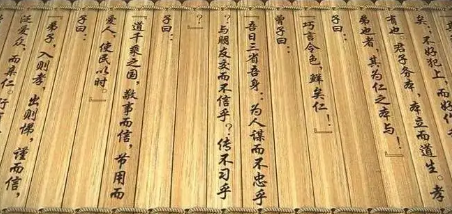 矣。不好犯上,而好作
有也。君子务本,本立而道生。孝
弟也者,其为仁之本与!』
子曰:
巧言令色,鲜矣仁!』
曾子曰:
吾日三省吾身:为人谋而不忠乎
?与朋友交而不信乎?传不习乎
?』
子曰:
道千乘之国,敬事而信,节用而
爱人,使民以时。』
子曰:
弟子 入则孝 出则悌,谨而信,
泛爱众,而亲仁。行有